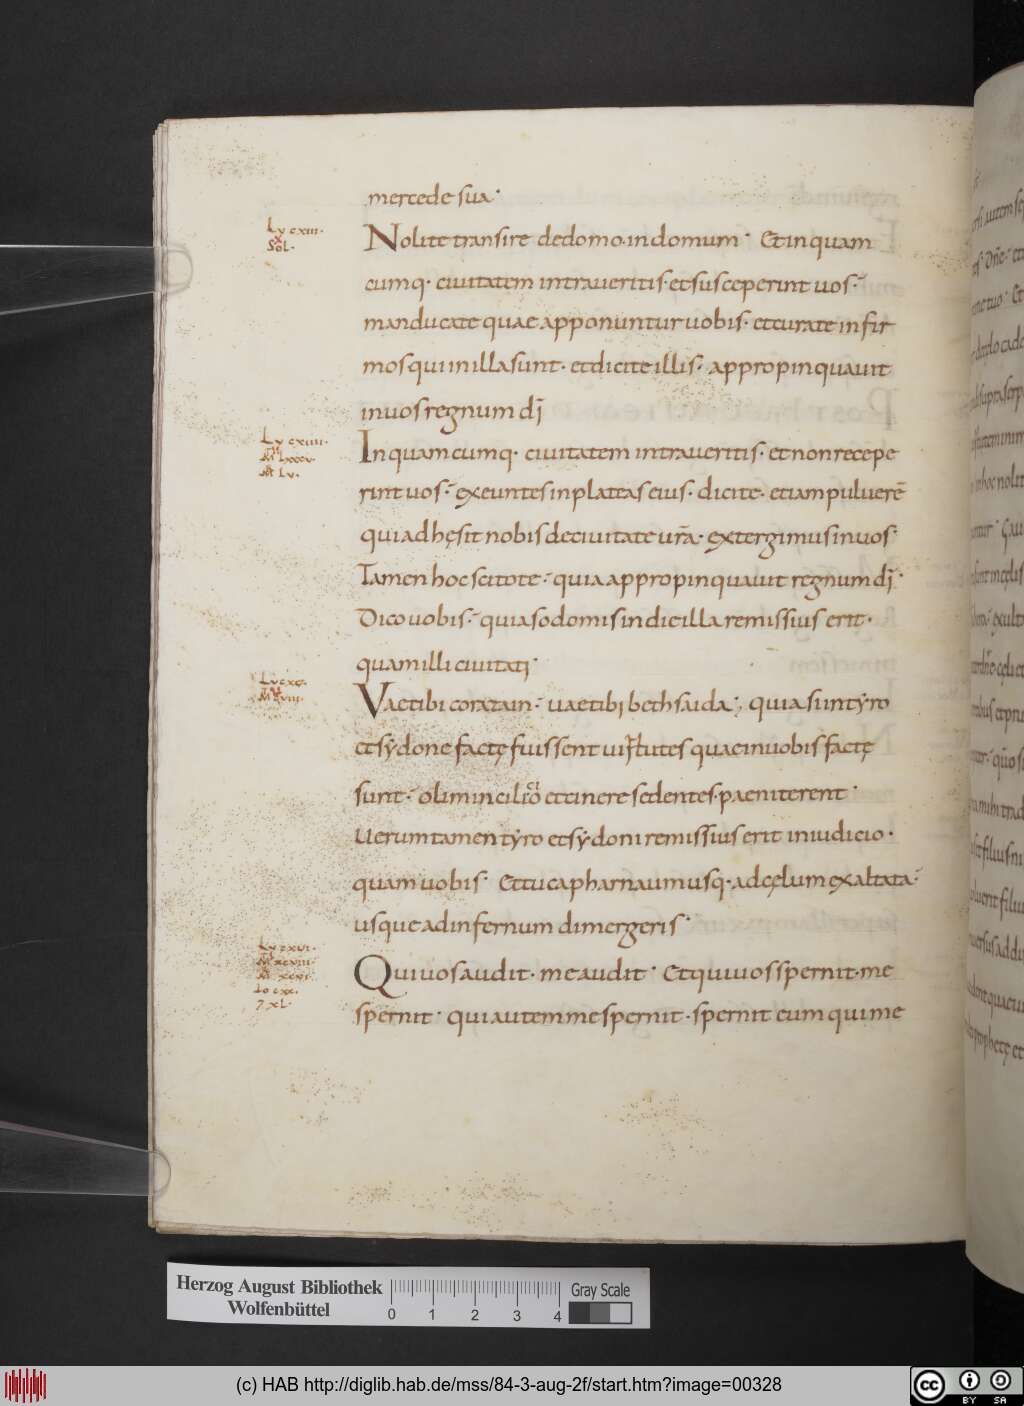 mercede sua·
Lu cxiii·
x
Sol·
Nolite transire dedomo·indomum· Etinquam
cumq· ciuitatem intraueritis·etsusceperint uos·
manducate quae apponuntur uobis· etcurate infir
mos qui inilla sunt· etdicite illis· appropinquauit
inuos regnum dī
Lu cxiiii·
M lxxxv·
M Lv·
Inquamcumq· ciuitatem intraueritis· etnonrecepe
rint uos· exeuntes inplateas eius· dicite· etiam puluerē
qui adhęsit nobis deciuitate ur̄a· extergimus inuos·
Tamen hoc scitote· quia appropinquauit regnum dī·
Dico uobis· quia sodomis indie illa remissius erit·
quam illi ciuitati·
Uae tibi corazain· uae tibi bethsaida· quia si intyro
etsydone factę fuissent uirtutes quae inuobis factę
sunt· olim incilicio etcinere sedentes·paeniterent·
Uerumtamen tyro etsydoni remissius erit iniudicio·
quam uobis· Ettu capharnaum usq·adcęlum exaltata·
usque adinfernum dimergeris·
Lu cxvi·
M xcviii·
M xcvi·
Io cxx·
7 xl·
Qui uos audit· me audit· Etqui uos spernit·me
spernit· qui autem me spernit·spernit eum qui me
Herzog August Bibliothek
Wolfenbüttel
0 1 2 3 4
Gray Scale
(c) HAB http://diglib.hab.de/mss/84-3-aug-2f/start.htm?image=00328
cc BY SA